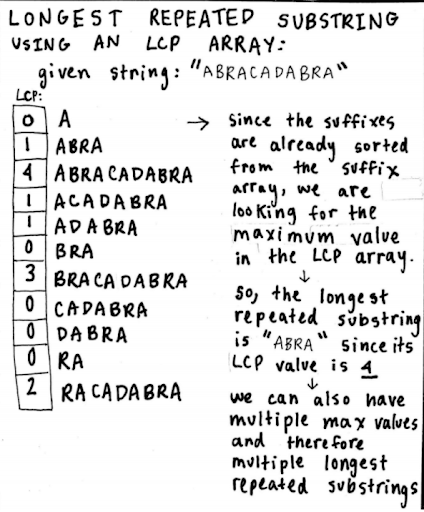 LONGEST REPEATED SUBSTRING
USING AN LCP ARRAY:
given string: "ABRACADABRA"
LCP:
0 A
1 ABRA
4 ABRACADABRA
1 ACADABRA
1 ADABRA
0 BRA
3 BRACADABRA
0 CADABRA
0 DABRA
0 RA
2 RACADABRA
→ Since the suffixes
are already sorted
from the suffix
array, we are
looking for the
maximum value
in the LCP array.
↓
So, the longest
repeated substring
is "ABRA" since its
LCP value is 4
↓
we can also have
multiple max values
and therefore
multiple longest
repeated substrings